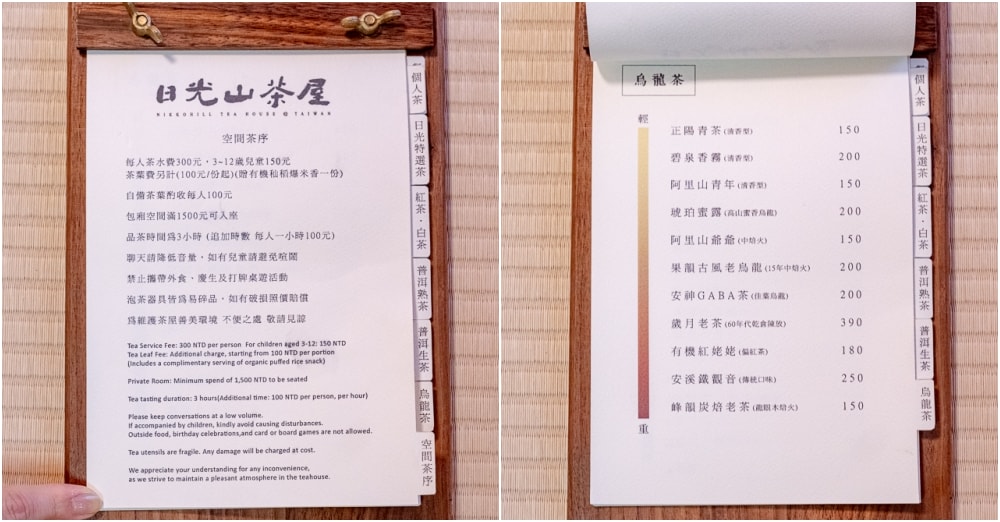 日光山茶屋
NIKKOHILL TEA HOUSE @ TAIWAN
空間茶序
每人茶水費300元，3~12歲兒童150元
茶葉費另計(100元/份起)(贈有機秈稻爆米香一份)
自備茶葉酌收每人100元
包廂空間滿1500元可入座
品茶時間爲3小時 (追加時數 每人一小時100元)
聊天請降低音量，如有兒童請避免喧鬧
禁止攜帶外食、慶生及打牌桌遊活動
泡茶器具皆爲易碎品，如有破損照價賠償
爲維護茶屋善美環境 不便之處 敬請見諒
Tea Service Fee: 300 NTD per person  For children aged 3-12: 150 NTD
Tea Leaf Fee: Additional charge, starting from 100 NTD per portion
(Includes a complimentary serving of organic puffed rice snack)
Private Room: Minimum spend of 1,500 NTD to be seated
Tea tasting duration: 3 hours(Additional time: 100 NTD per person, per hour)
Please keep conversations at a low volume.
If accompanied by children, kindly avoid causing disturbances.
Outside food, birthday celebrations,and card or board games are not allowed.
Tea utensils are fragile. Any damage will be charged at cost.
We appreciate your understanding for any inconvenience,
as we strive to maintain a pleasant atmosphere in the teahouse.
個人茶
日光特選茶
紅茶·白茶
普洱熟茶
普洱生茶
烏龍茶
空間茶序
烏龍茶
輕
正陽青茶(清香型) 150
碧泉香霧(清香型) 200
阿里山青年(清香型) 150
琥珀蜜露(高山蜜香烏龍) 200
阿里山爺爺(中焙火) 150
果韻古風老烏龍(15年中焙火) 200
安神GABA茶(佳葉烏龍) 200
歲月老茶(60年代乾倉陳放) 390
有機紅姥姥(偏紅茶) 180
安溪鐵觀音(傳統口味) 250
峰韻炭焙老茶(龍眼木焙火) 150
重
個人茶
日光特選茶
紅茶·白茶
普洱熟茶
普洱生茶
烏龍茶